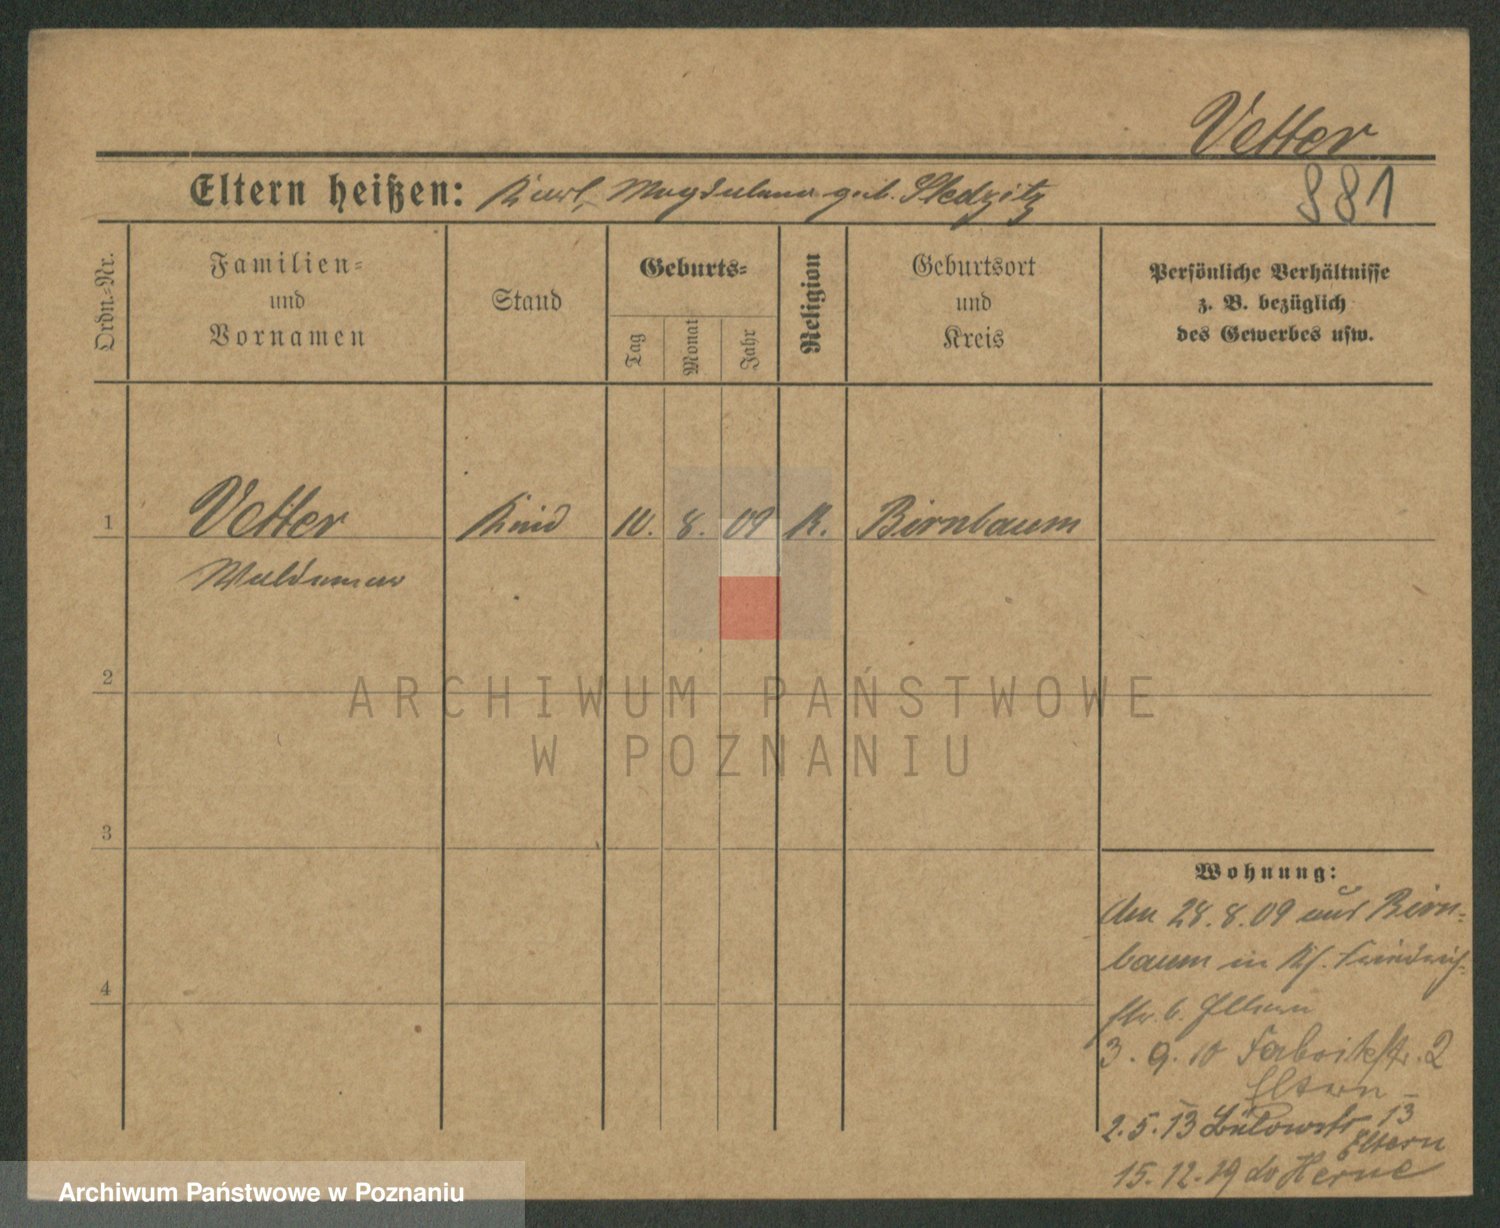 Vetter
Eltern heißen: Karl, Magdalena geb. Sledzitz
881
Ordn.-Nr.
Familien-
und
Vornamen
Stand
Geburts-
Tag
Monat
Jahr
Religion
Geburtsort
und
Kreis
Persönliche Verhältnisse
z. B. bezüglich
des Gewerbes usw.
1
Vetter
Kind
10.
8.
09
K.
Birnbaum
Waldemar
2
ARCHIWUM PAŃSTWOWE
W POZNANIU
3
4
Wohnung:
Am 28.8.09 aus Birn-
baum in Friedrich-
str. 6. Eltern
3.9.10 Fabrikstr. 2
Eltern
2.5.13 Bülowstr 13
Eltern
15.12.19 Herne
Archiwum Państwowe w Poznaniu